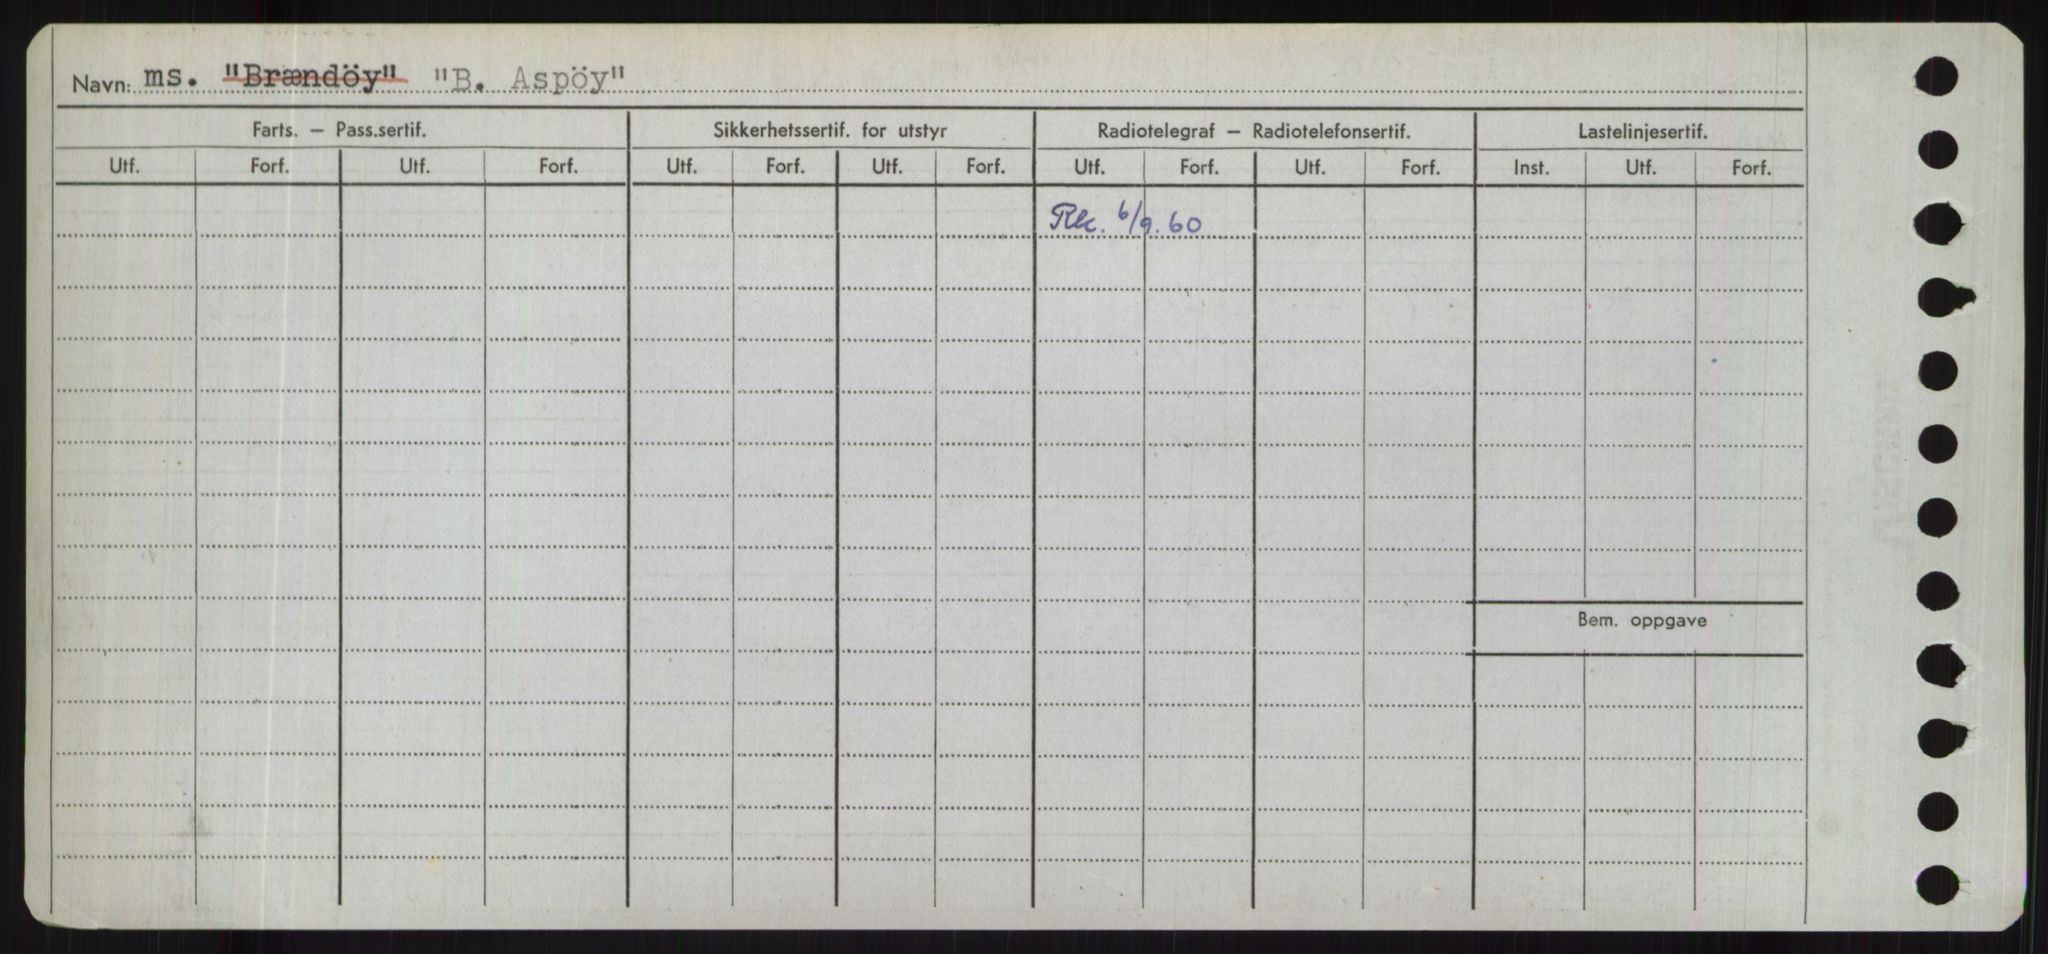 Navn: ms. "Brændöy" "B. Aspöy"
Farts. — Pass.sertif. Sikkerhetssertif. for utstyr Radiotelegraf — Radiotelefonsertif. Lastelinjesertif.
Utf. Forf. Utf. Forf. Utf. Forf. Utf. Forf. Utf. Forf. Utf. Forf. Inst. Utf. Forf.
Rk. 6/9.60
Bem. oppgave